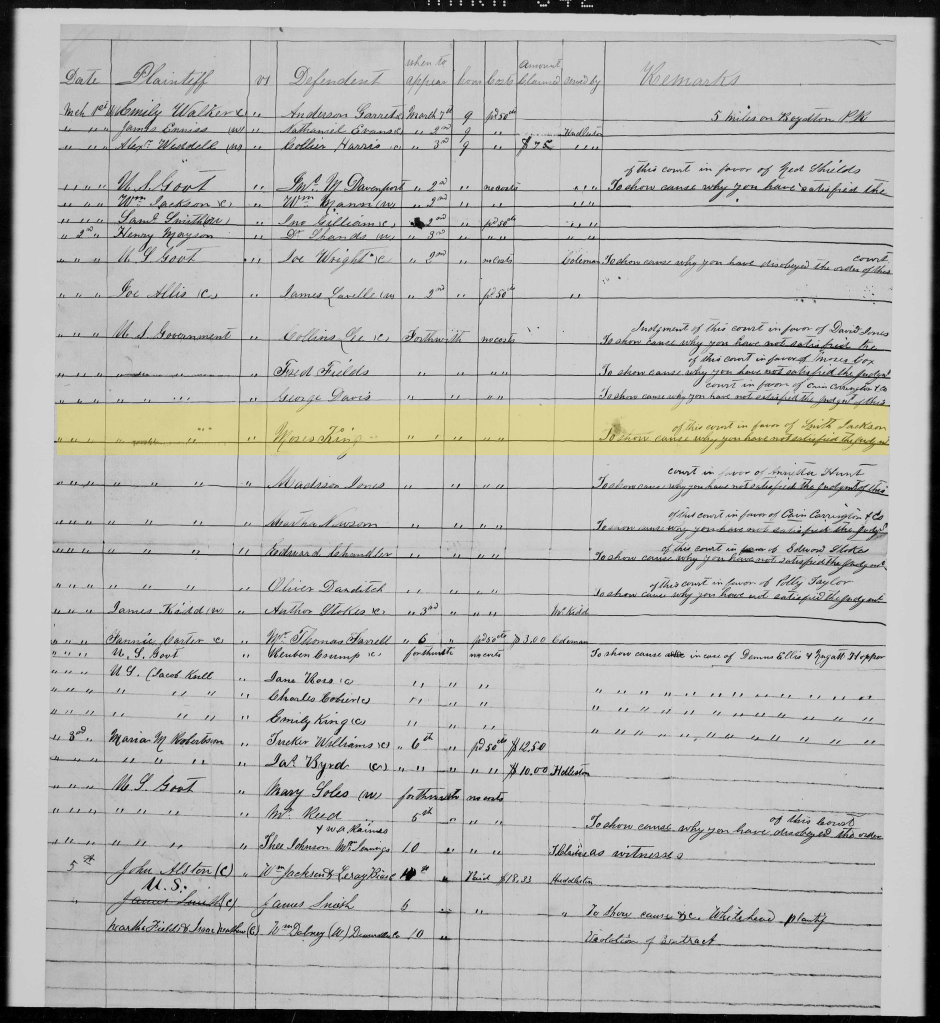 Date Plaintiff vs Defendent when to appear hour Costs Amount Claimed served by Remarks
Mch 1st Emily Walker (c) " Anderson Garrett March 7th 9 pd 50cts 5 miles on Boydton P.R.
" " " James Enniss (w) " Nathaniel Evans (c) " 2nd 9 " Hudleston
" " " Alexr. Weddell (w) " Collier Harris (c) " 3rd 9 " " $75 " " "
of this court in favor of Ned Shields
" " " U. S. Govt " Jno. M. Davenport " 2nd " no costs " " " To show cause why you have satisfied the
" " " Wm Jackson (c) " Wm Mann (w) " 2nd " " " "
" " " Saml Smith (w) " Jno Gilliam (c) " 2nd " pd 50cts " "
" 2nd " Henry Mayson " Dr Shands (w) " 3rd " " " "
court
" " " U S Govt " Joe Wright (c) " 2nd " no costs Coleman To show cause why you have disobeyed the order of this
" " " Joe Allis (c) " James Lavelle (w) " 2nd " pd 50cts " "
Judgment of this court in favor of David Jones
" " " U. S. Government " Collins Lee (c) Forthwith no costs To show cause why you have not satisfied the
of this court in favor of Moses Cox
" " " " Fred Fields " " " " To show cause why you have not satisfied the judgmt
court in favor of Cain Carrington & Co
" " " " " " " George Davis " " " " To show cause why you have not satisfied the judgmt of this
of this court in favor of Jackson
" " " " " " Moses King " " " " To show cause why you have not satisfied the judgmt
court in favor of Hunt
" " " " " " " Maddison Jones " " " " To show cause why you have not satisfied the judgmt of this
of this court in favor of Cain Carrington & Co
" " " " " " " Martha Newsom " " " " To show cause why you have not satisfied the judgt
of this court in favor of Edwin Stokes
" " " " " " " Edward Chandler " " " " To show cause why you have not satisfied the judgmt
of this court in favor of Polly Taylor
" " " " " " Oliver Danditch " " " " To show cause why you have not satisfied the judgmt
" " " James Kidd (w) " Author Stokes (c) " 3rd " " " Mr. Kidd
" " " Fannie Carter (c) " Mr. Thomas Farrell " 6 " pd 50cts $3.00 Coleman
" " " U. S. Govt " Reuben Crump (c) forthwith no costs To show cause in case of Dennis Ellis &
" " " U S. (Jacob " Jane Ross (c) " " " " " " " " " " " " "
" " " " " " " " Charles (c) " " " " " " " " " " " " "
" " " " " " " Emily King (c) " " " " " " " " " " " " "
" 3rd " Maria M Robertson " Tucker Williams (c) " 6th " pd 50cts $12.50
" " " " " " " Jas. Byrd (c) " " " " " $10.00 Hudleston
" " " U S Govt " Mary Soles (w) forthwith no costs
of this Court
" " " " " " " Mr. Reed 5th " " " To show cause why you have disobeyed the order
& W.A. Raines
" " " " " " Johnson Mr. Jennings 10 " " as witnesses
5th John Alston (c) " Wm Jackson & Leroy th " Paid $18.33 Huddleston
U.S.
" James Smith (c) James Smith 6 " " " To show cause &c. Whitehead plantif
Martha Fields & (c) Wm Dabney (W) 10 " Violation of Contract